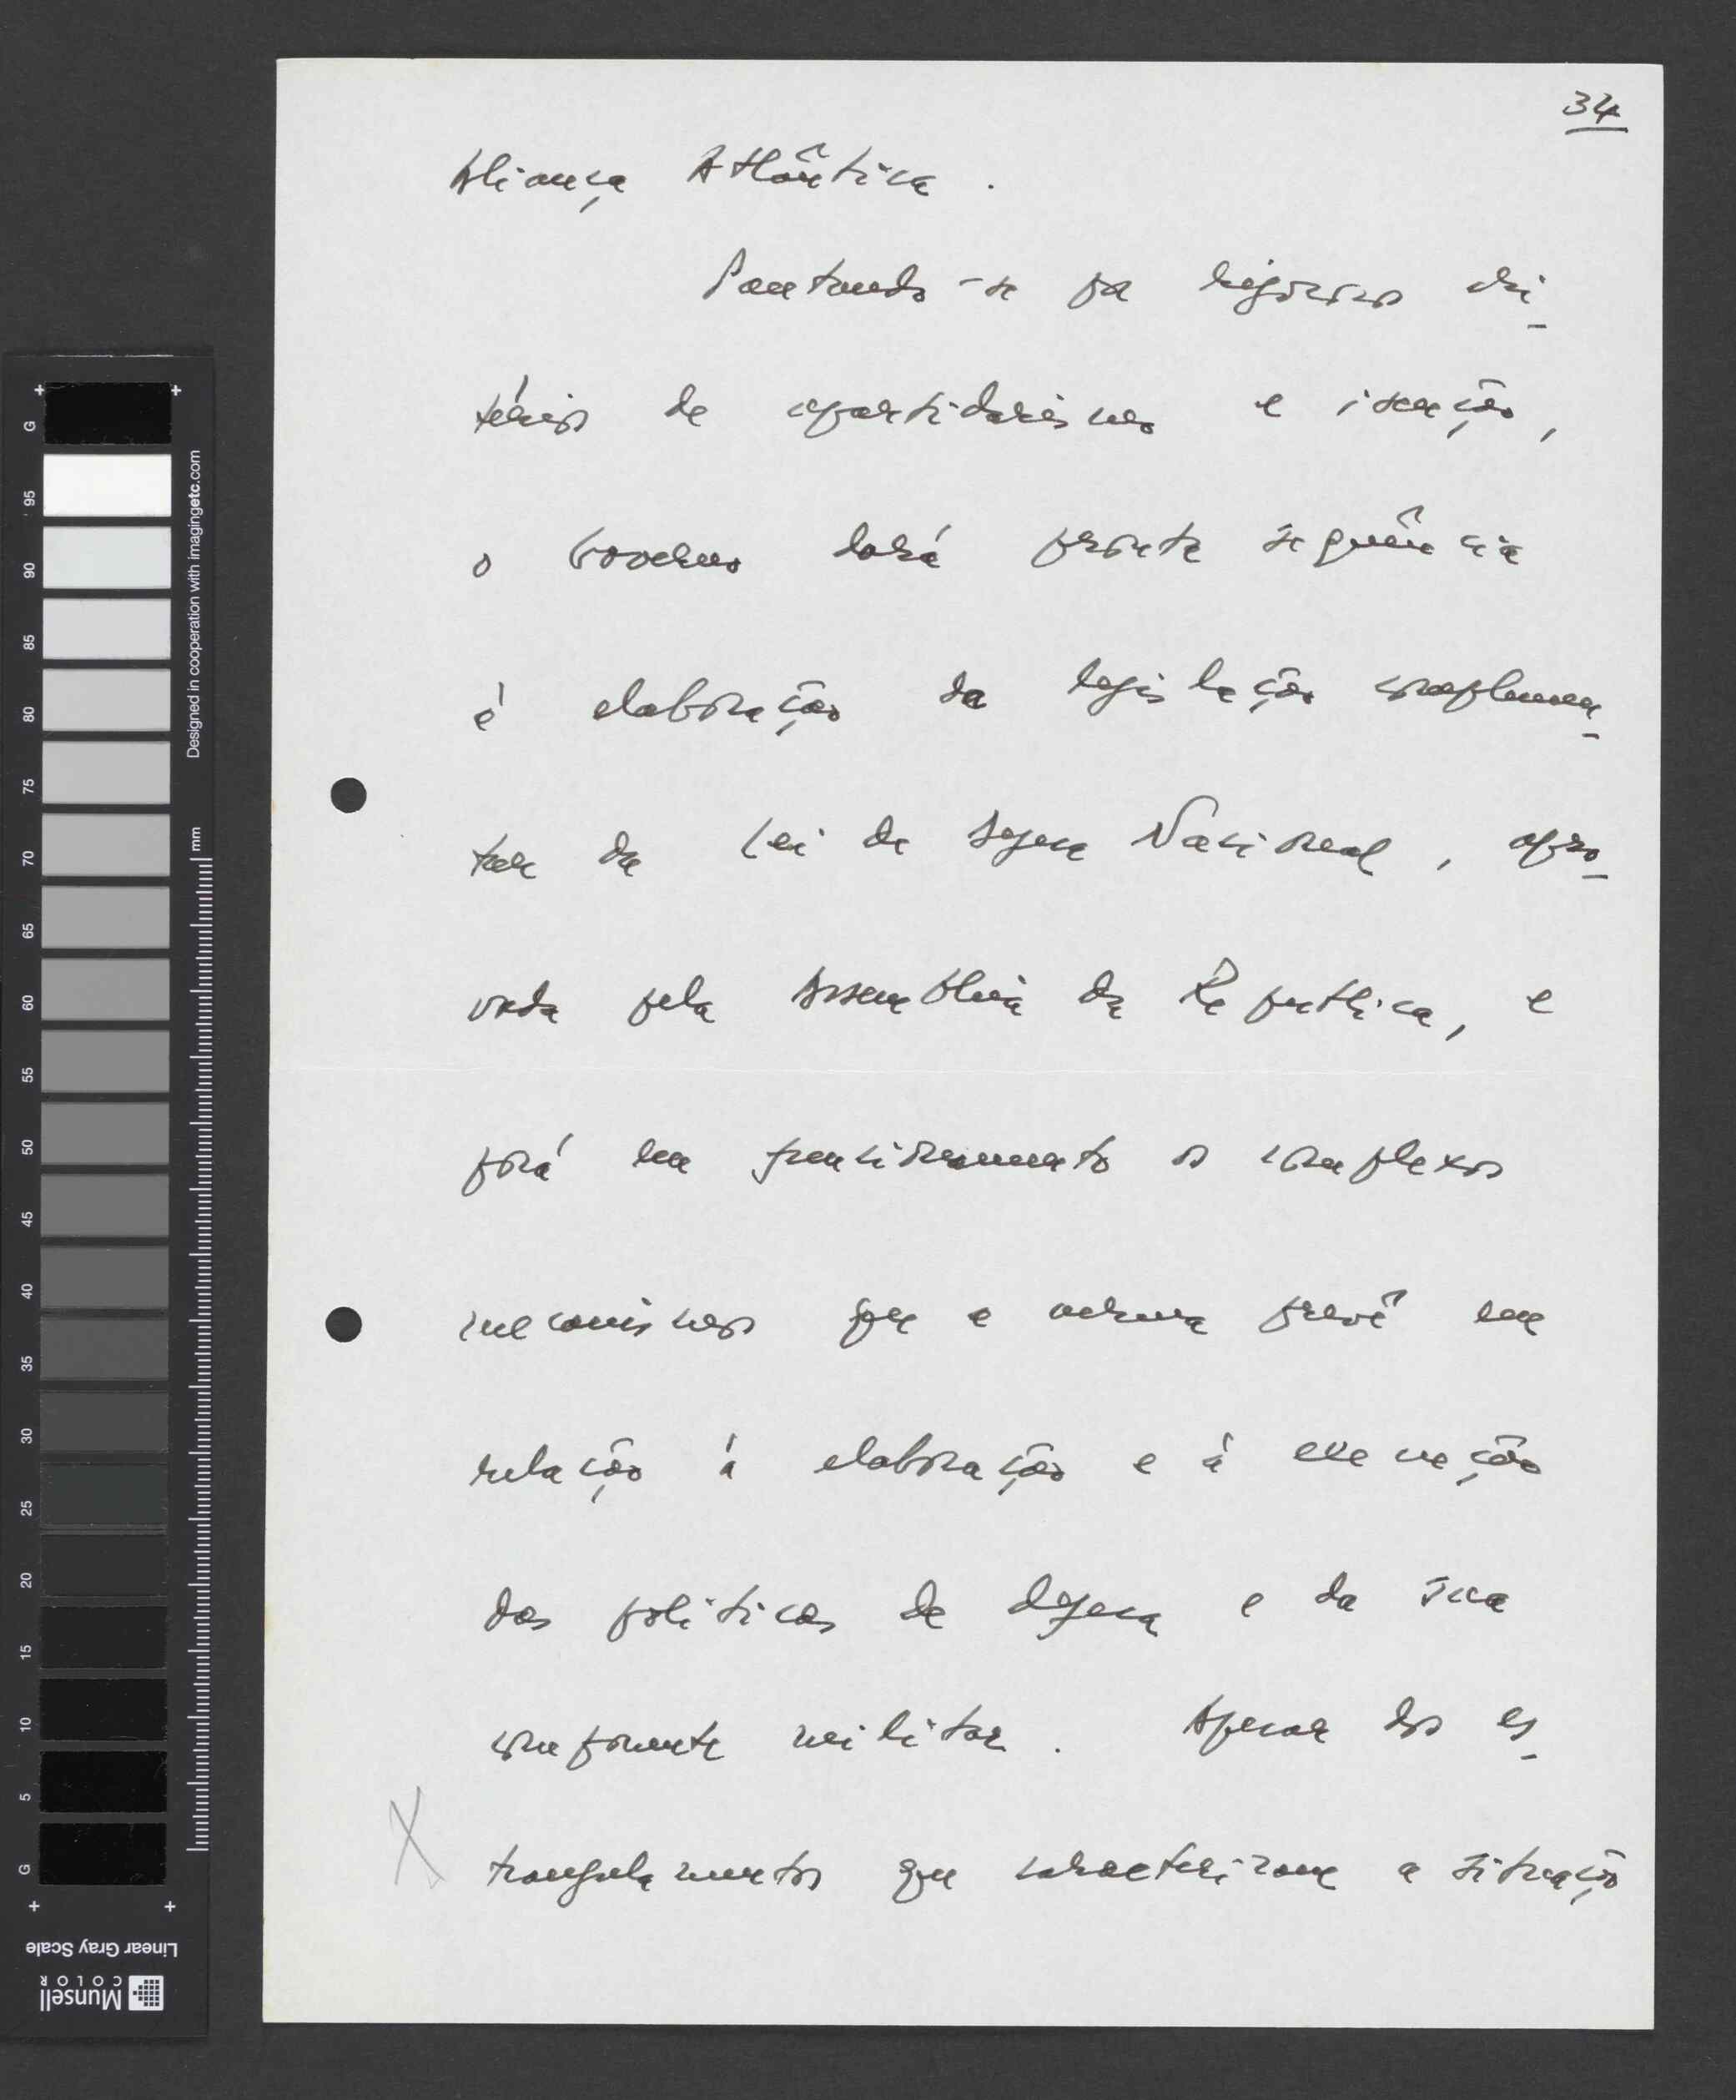 34
Aliança Atlântica.
Pautando-se por rigorosos cri-
térios de apartidarismo e isenção,
o Governo dará pronta sequência
à elaboração da legislação complemen-
tar da Lei de Defesa Nacional, apro-
vada pela Assembleia da República, e
porá em funcionamento os complexos
mecanismos que a mesma prevê em
relação à elaboração e à execução
das políticas de defesa e da sua
componente militar. Apesar dos es-
trangulamentos que caracterizam a situação
X
G
95
90
85
80
75
70
65
60
55
50
45
40
35
30
25
20
15
10
5
G
mm
Designed in cooperation with imagingetc.com
Linear Gray Scale
Munsell
COLOR